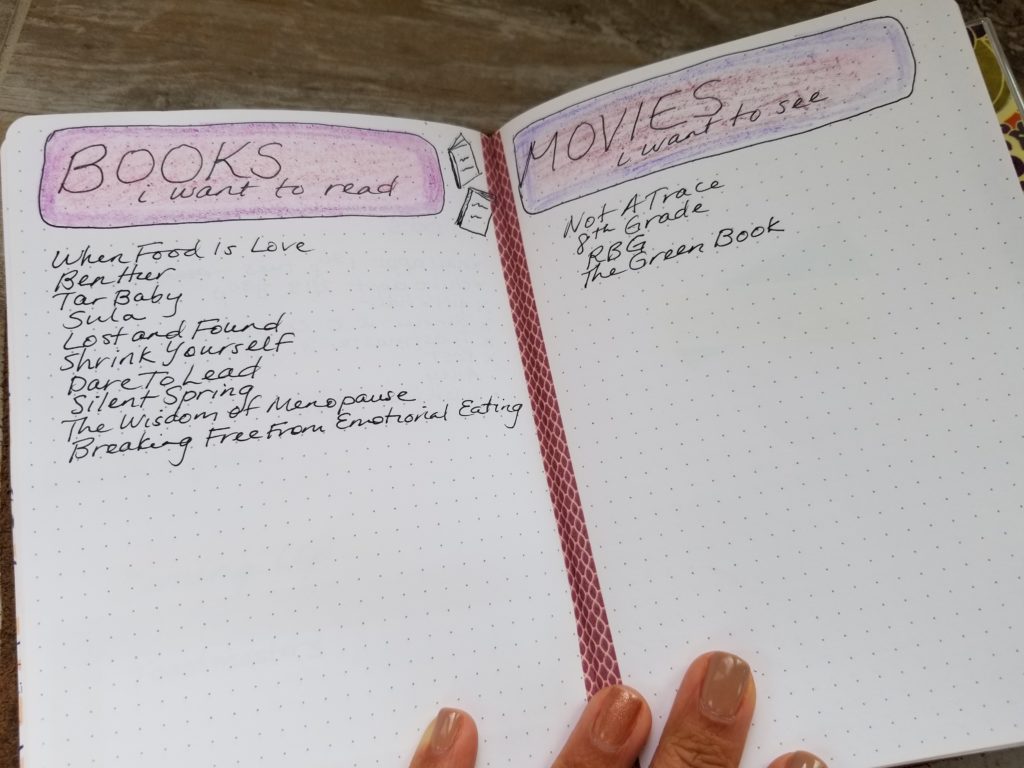 BOOKS
i want to read
When Food is Love
Ben Hur
Tar Baby
Sula
Lost and Found
Shrink Yourself
Dare To Lead
Silent Spring
The Wisdom of Menopause
Breaking Free From Emotional Eating
MOVIES
i want to see
Not A Trace
8th Grade
RBG
The Green Book